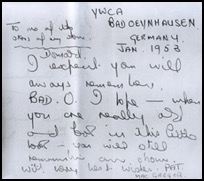 YWCA
To one of the
BAD OEYNHAUSEN
GERMANY.
JAN. 1953
I expect you will
always remember
BAD. O. I hope — when
you are really old
and look in this
book — you will still
remember our
with very best wishes. PAT
MAC GREGOR.